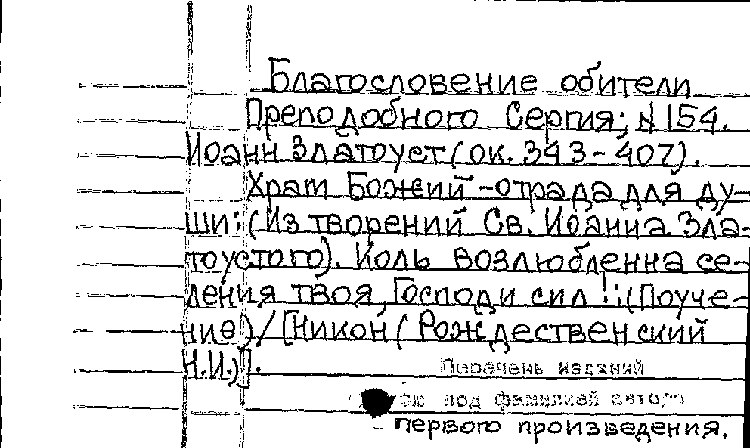 Благословение обители
Преподобного Сергия; № 154.
Иоанн Златоуст (ок. 343-407).
Храм Божий - отрада для ду-
ши: (Из творений Св. Иоанна Зла-
тоустого). Коль возлюбленна се-
ления твоя, Господи сил!: (Поуче-
ние) / [Никон (Рождественский
Н.И.)].
Перечень изданий
под фамилией автора
- первого произведения.